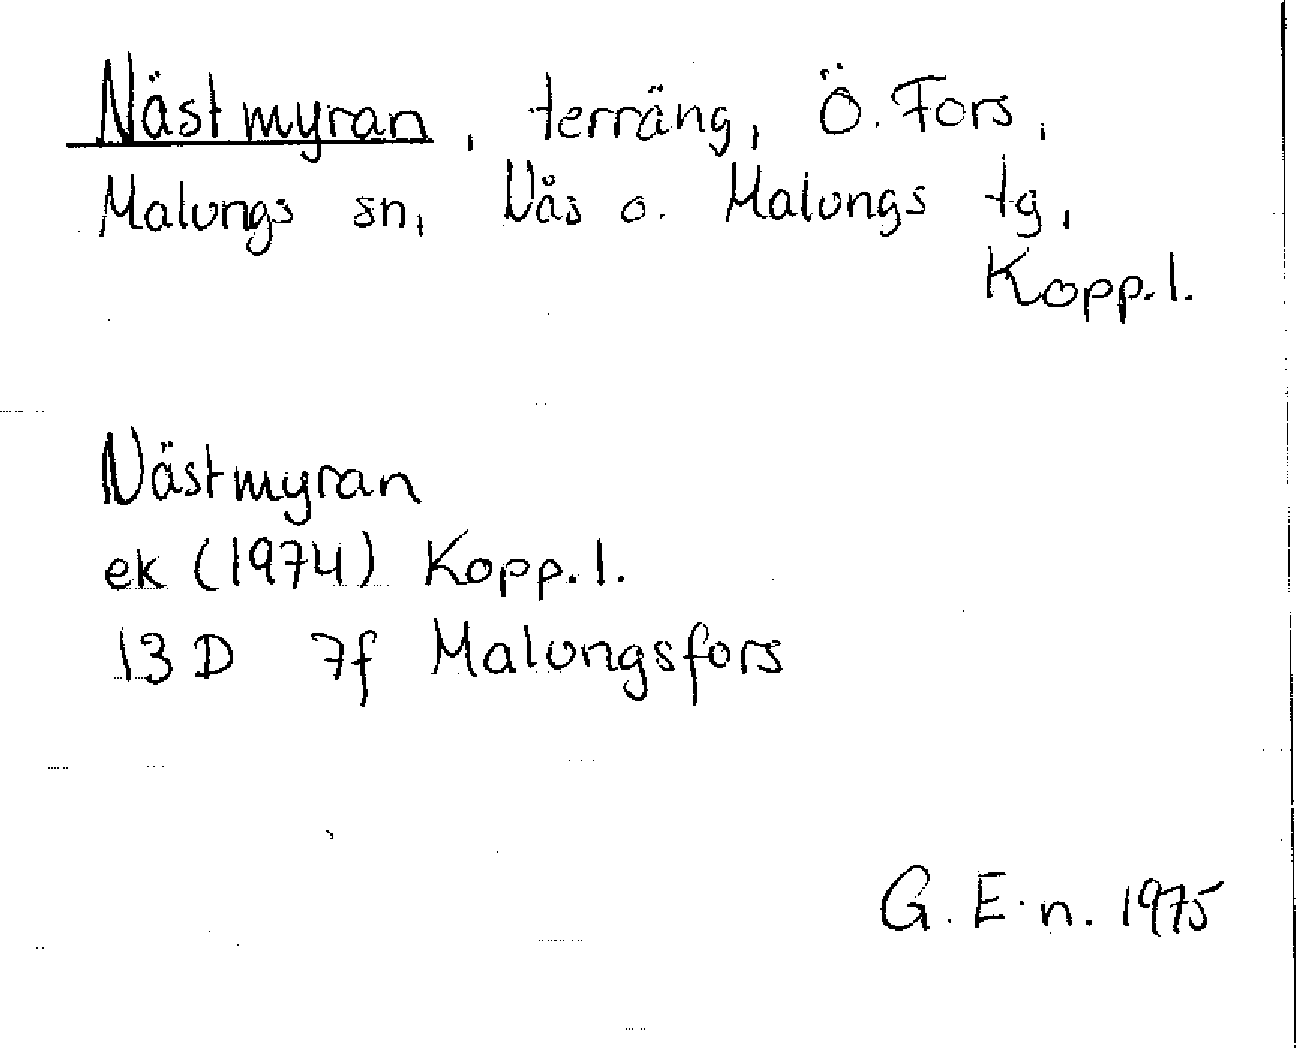 Nästmyran, terräng, Ö. Fors,
Malungs sn, Nås o. Malungs tg,
Kopp.l.
Nästmyran
ek (1974) Kopp.l.
13D 7f Malungsfors
G. E·n. 1975